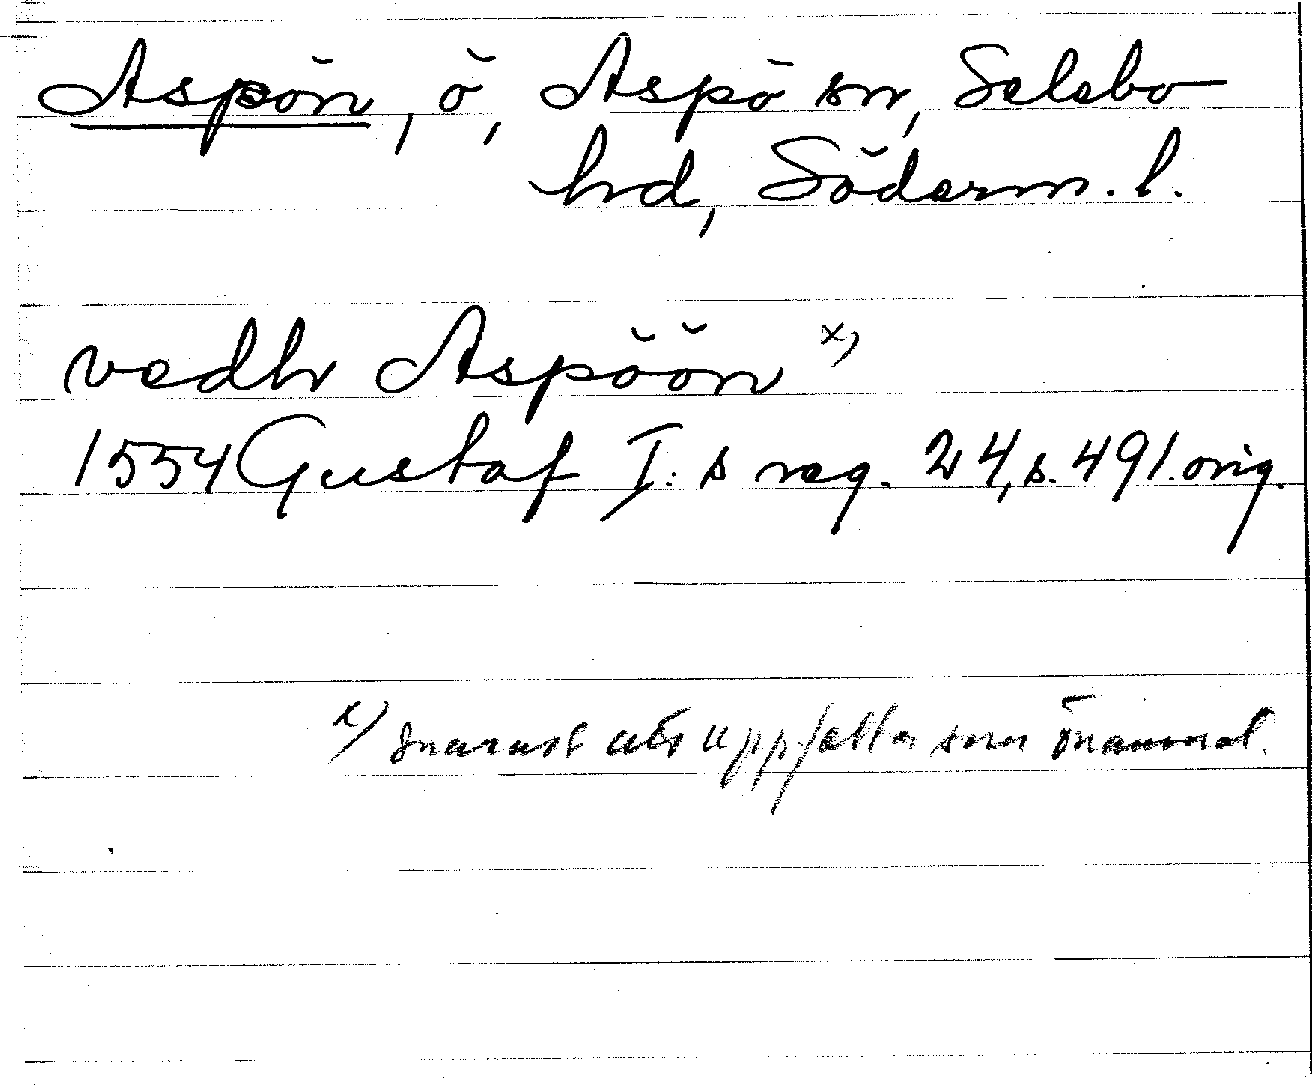 Aspön, ö, Aspö sn, Selebo
hd, Söderm. l.
vedh Aspöön x)
1554 Gustaf I:s reg. 24, s. 491. orig.
x) snarast att uppfatta som önamnet.